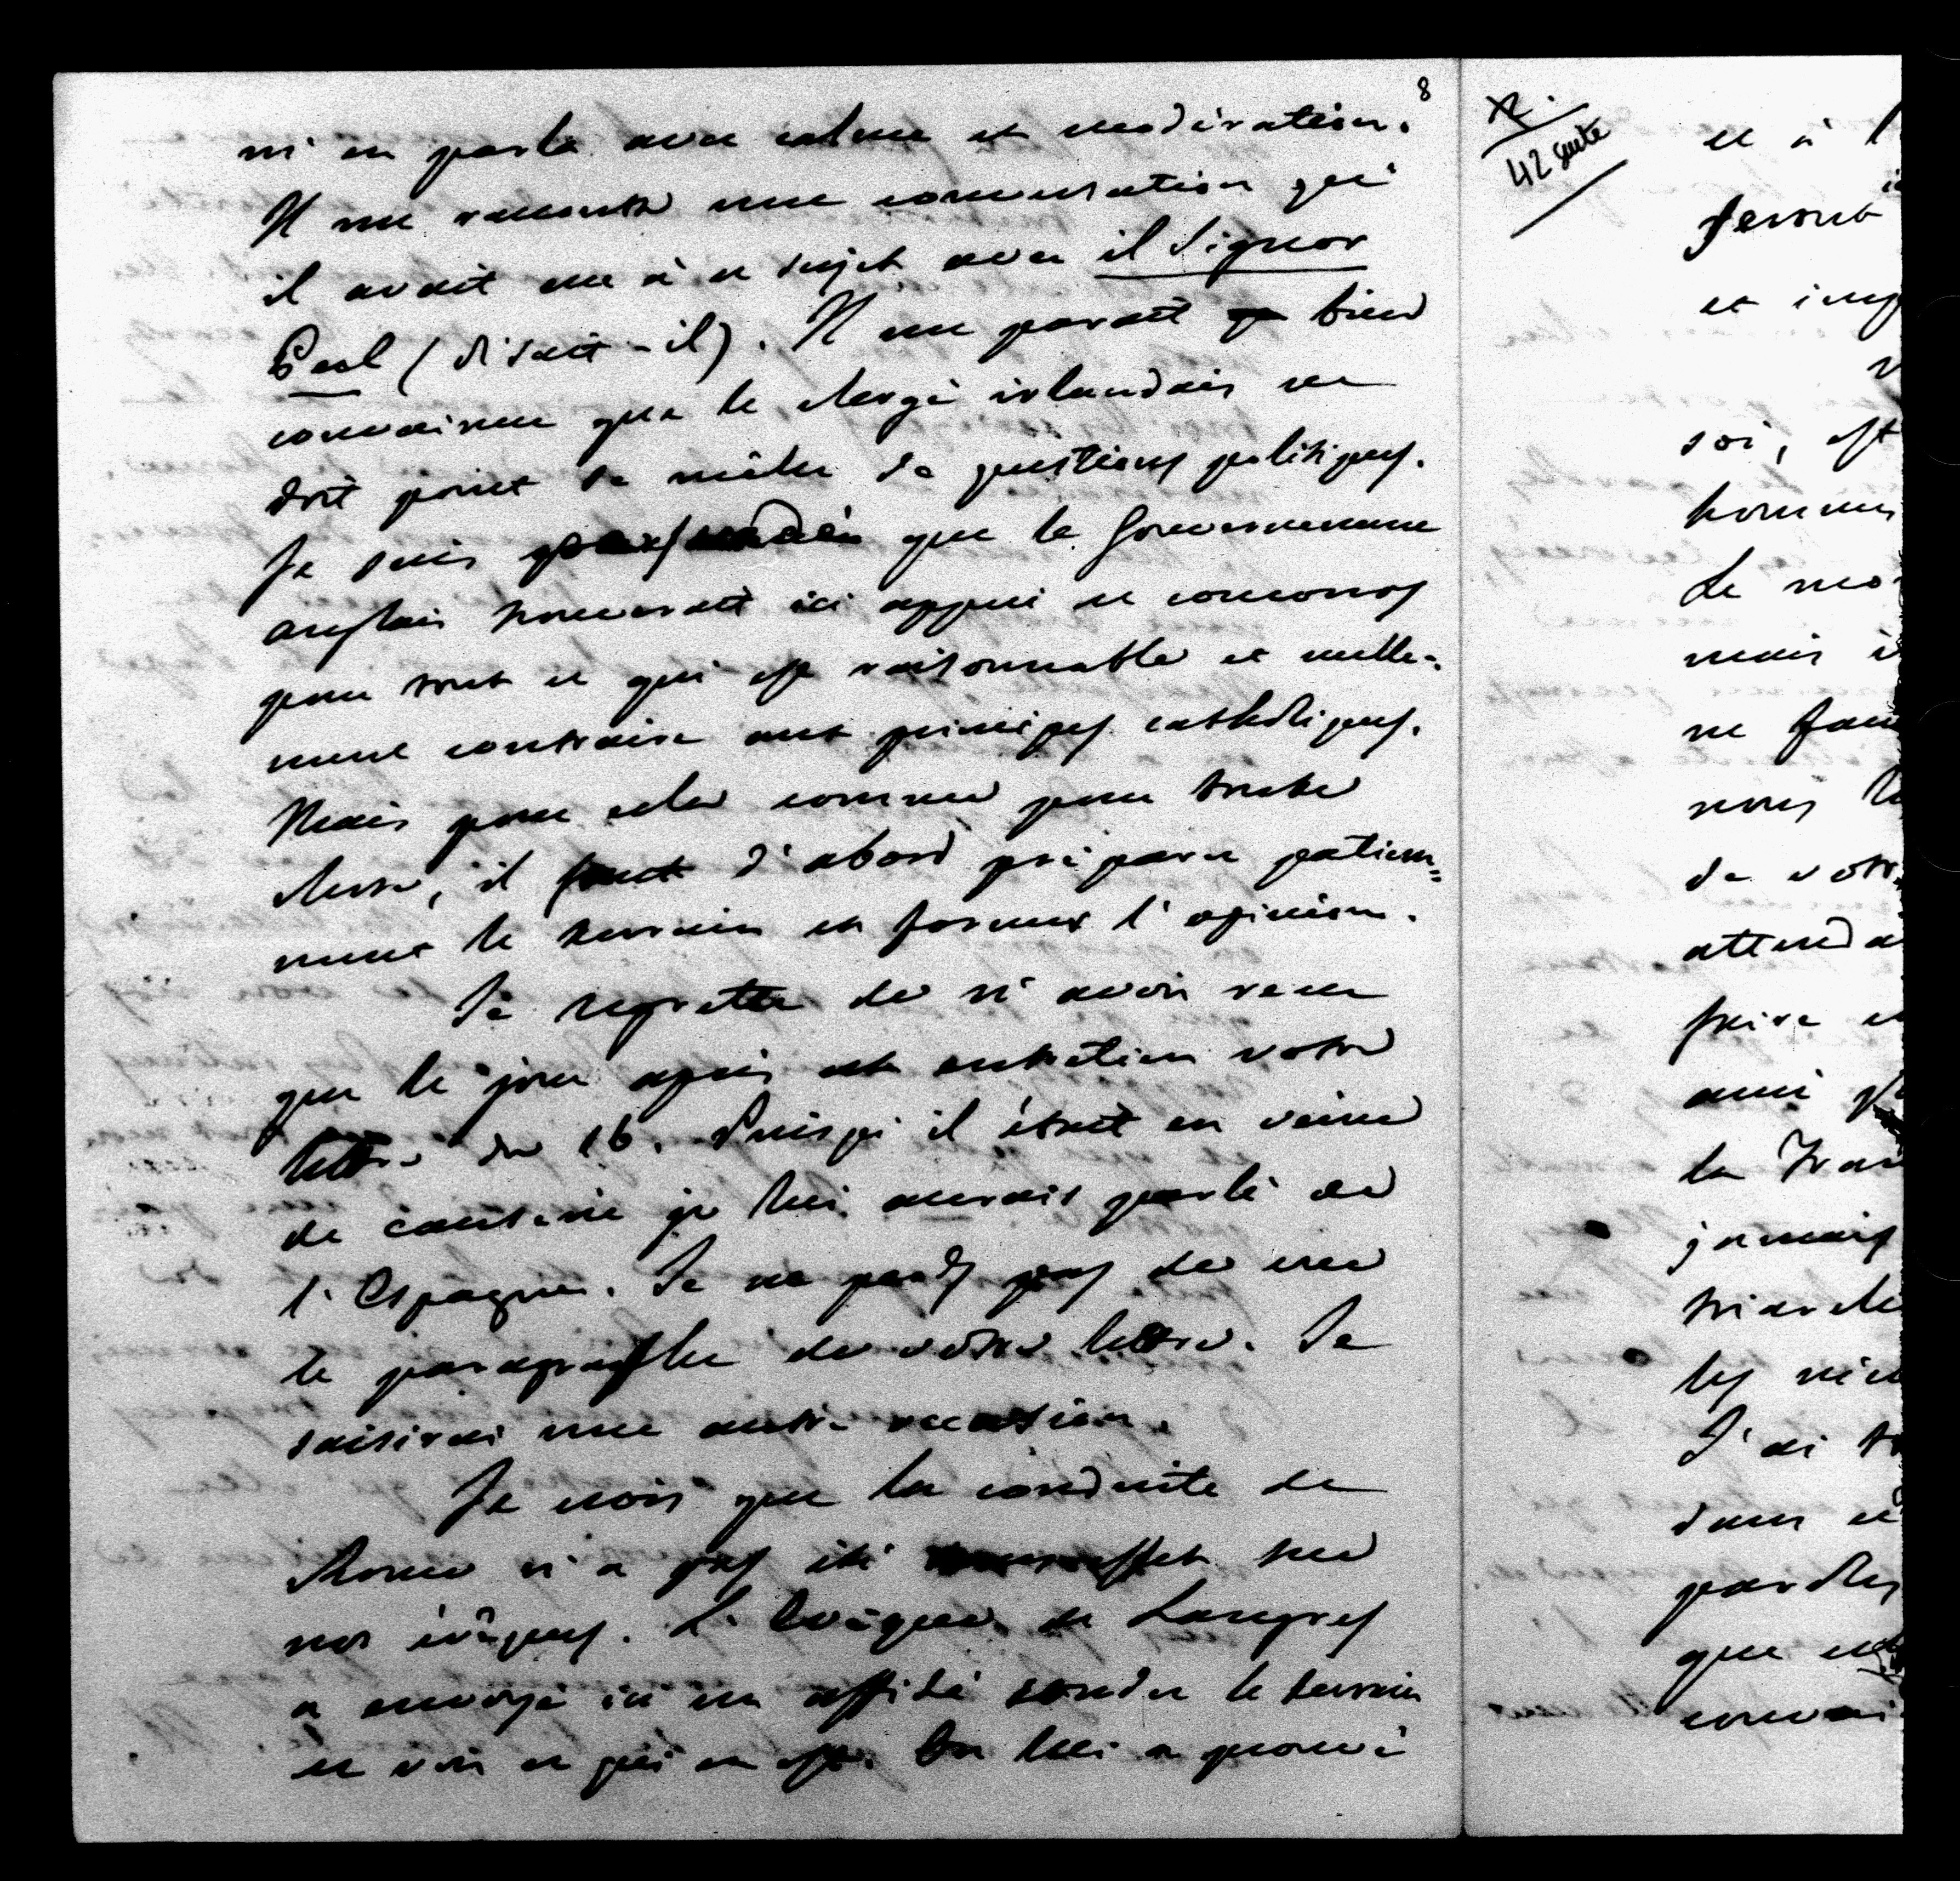 8
m'en parla avec calme et modération.
Il me raconta une conversation qu'
il avait eue à ce sujet avec il Signor
Peel (disait-il). Il me parait bien
convaincu que le clergé irlandais ne
doit point se mêler de questions politiques.
Je suis persuadé que le Gouvernement
anglais trouverait ici appui et concours
pour tout ce qui est raisonnable et nulle-
ment contraire aux principes catholiques.
Mais pour cela comme pour toute
chose, il faut d'abord préparer patiem=
ment le terrain et former l'opinion.
Je regrette de n'avoir reçu
que le jour après cet entretien votre
lettre du 16. Puisqu'il était en veine
de causerie je lui aurais parlé de
l'Espagne. Je ne perds pas de vue
le paragraphe de votre lettre. Je
saisirai une autre occasion.
Je vois que la conduite de
Rome n'a pas été sans effet sur
nos évêques. L'Evêque de Langres
a envoyé ici un affidé sonder le terrain
et voir ce qui en est. On lui a prouvé
42 suite
et à l
feront
et imp
soi, est
hommes
Le mo
mais i
ne fau
nous
de votr
attenda
faire
ami
la Fran
jamais
triarche
les
J'ai
dans ce
paroles
que
convai